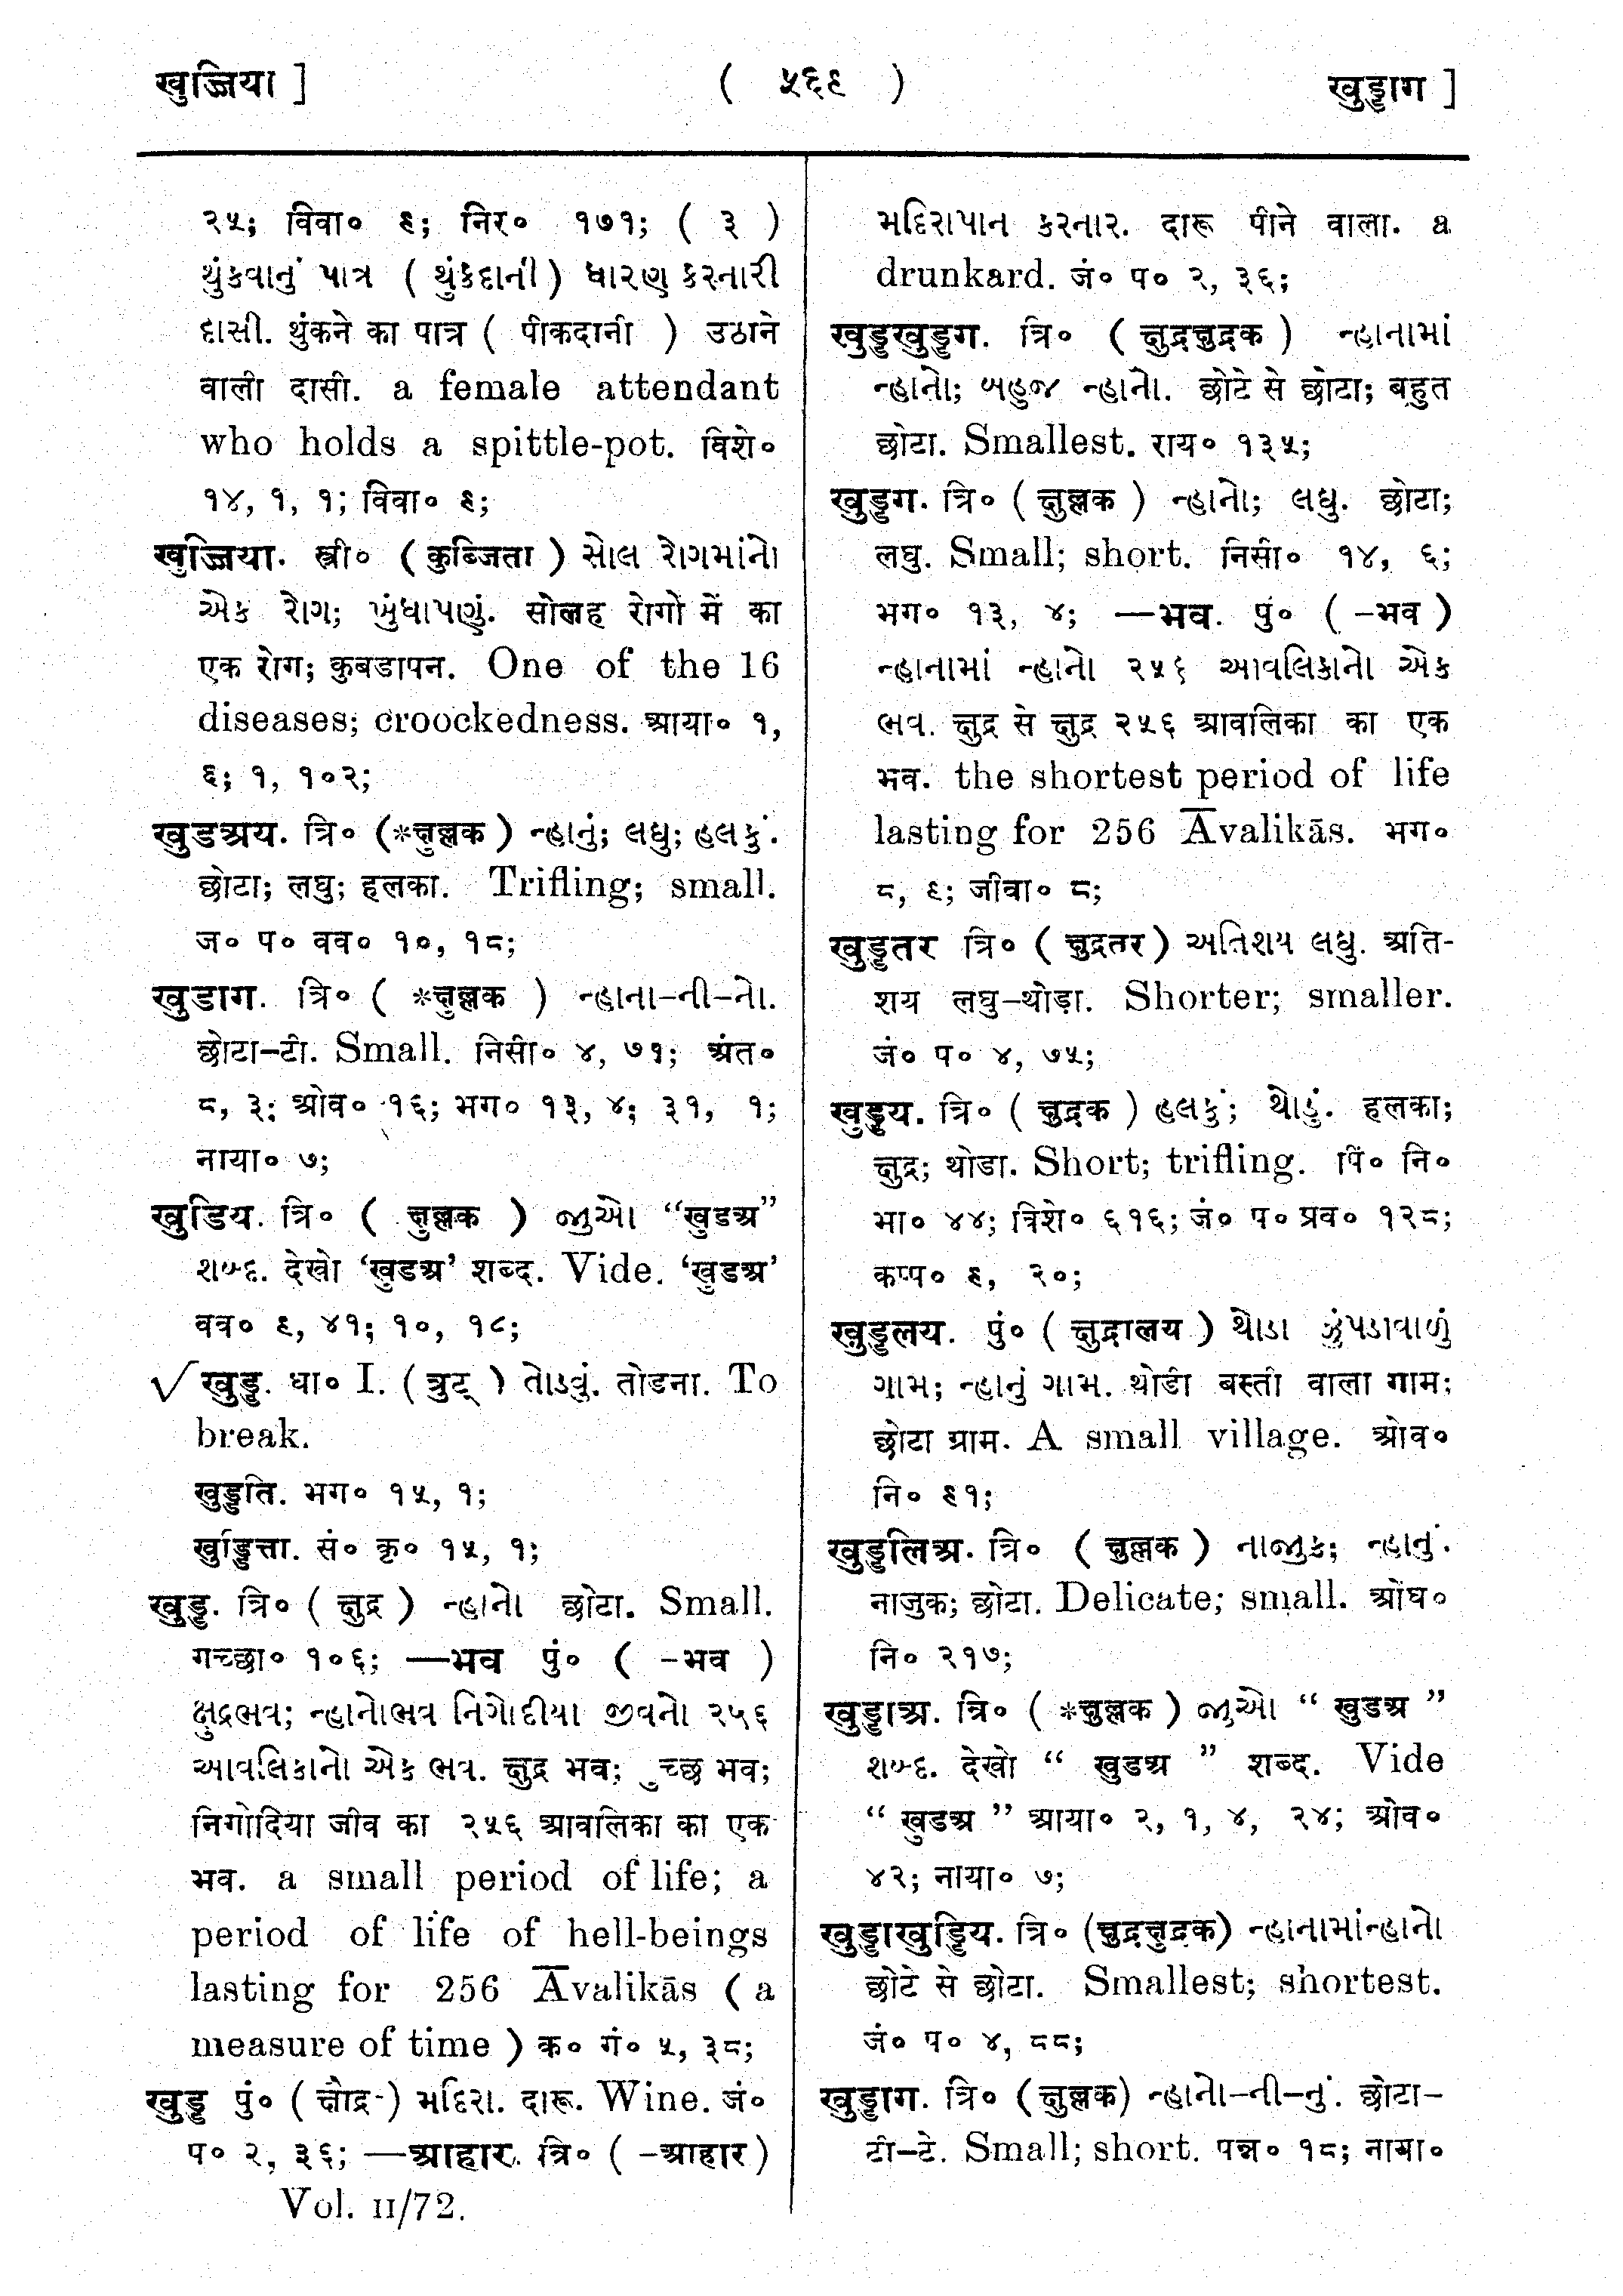 खुज्जिया ]
( ५६९ )
खुड्डाग ]
२५; विवा० ६; निर० १७१; ( ३ )
થુંકવાનું પાત્ર ( થુંકદાની ) ધારણ કરનારી
દાસી. थुंकने का पात्र ( पीकदानी ) उठाने
वाली दासी. a female attendant
who holds a spittle-pot. विशे०
१४, १, १; विवा० ६;
खुज्जिया. स्त्री० ( कुब्जिता ) સોલ રોગમાંનો
એક રોગ; ખુંધાપણું. सोलह रोगों में का
एक रोग; कुबडापन. One of the 16
diseases; croockedness. आया० १,
६; १, १०२;
खुडअय. त्रि० (*क्षुल्लक ) ન્હાનું; લઘુ; હલકું.
छोटा; लघु; हलका. Trifling; small.
ज० प० वव० १०, १८;
खुडाग. त्रि० ( *क्षुल्लक ) ન્હાના-ની-નો.
छोटा-टी. Small. निसी० ४, ७१; अंत०
८, ३; ओव० १६; भग० १३, ४; ३१, १;
नाया० ७;
खुडिय. त्रि० ( क्षुल्लक ) જુઓ “खुडअ”
શબ્દ. देखो ‘खुडअ’ शब्द. Vide. ‘खुडअ’
वव० ९, ४१; १०, १८;
√ खुड्ड. धा० I. ( त्रुट् ) તોડવું. तोडना. To
break.
खुड्डति. भग० १५, १;
खुड्डित्ता. सं० कृ० १५, १;
खुड्ड. त्रि० ( क्षुद्र ) ન્હાનો छोटा. Small.
गच्छा० १०६; —भव पुं० ( -भव )
ક્ષુદ્રભવ; ન્હાનોભવ નિગોદીયા જીવનો ૨૫૬
આવલિકાનો એક ભવ. क्षुद्र भव; ुच्छ भव;
निगोदिया जीव का २५६ आवलिका का एक
भव. a small period of life; a
period of life of hell-beings
lasting for 256 Āvalikās ( a
measure of time ) क० गं० ५, ३८;
खुड्ड पुं० ( क्षौद्र-) મદિરા. दारू. Wine. जं०
प० २, ३६; —आहार. त्रि० ( -आहार )
Vol. II/72.
મદિરાપાન કરનાર. दारू पीने वाला. a
drunkard. जं० प० २, ३६;
खुड्डखुड्डग. त्रि० ( क्षुद्रक्षुद्रक ) ન્હાનામાં
ન્હાનો; બહુજ ન્હાનો. छोटे से छोटा; बहुत
छोटा. Smallest. राय० १३५;
खुड्डग. त्रि० ( क्षुल्लक ) ન્હાનો; લઘુ. छोटा;
लघु. Small; short. निसी० १४, ६;
भग० १३, ४; —भव. पुं० ( -भव )
ન્હાનામાં ન્હાનો ૨૫૬ આવલિકાનો એક
ભવ. क्षुद्र से क्षुद्र २५६ आवलिका का एक
भव. the shortest period of life
lasting for 256 Āvalikās. भग०
८, ९; जीवा० ८;
खुड्डतर त्रि० ( क्षुद्रतर ) અતિશય લઘુ. अति-
शय लघु-थोड़ा. Shorter; smaller.
जं० प० ४, ७५;
खुड्डय. त्रि० ( क्षुद्रक ) હલકું; થોડું. हलका;
क्षुद्र; थोडा. Short; trifling. पिं० नि०
भा० ४४; विशे० ६१६; जं० प० प्रव० १२८;
कप्प० ६, २०;
खुड्डलय. पुं० ( क्षुद्रालय ) થોડા ઝુંપડાવાળું
ગામ; ન્હાનું ગામ. थोडी बस्ती वाला गाम;
छोटा ग्राम. A small village. ओव०
नि० ६१;
खुड्डलिअ. त्रि० ( क्षुल्लक ) નાજુક; ન્હાનું.
नाजुक; छोटा. Delicate; small. ओघ०
नि० २१७;
खुड्डाअ. त्रि० ( *क्षुल्लक ) જુઓ “ खुडअ ”
શબ્દ. देखो “ खुडअ ” शब्द. Vide
“ खुडअ ” आया० २, १, ४, २४; ओव०
४२; नाया० ७;
खुड्डाखुड्डिय. त्रि० (क्षुद्रक्षुद्रक) ન્હાનામાંન્હાનો
छोटे से छोटा. Smallest; shortest.
जं० प० ४, ८८;
खुड्डाग. त्रि० ( क्षुल्लक) ન્હાનો-ની-નું. छोटा-
टी-टे. Small; short. पन्न० १८; नाया०